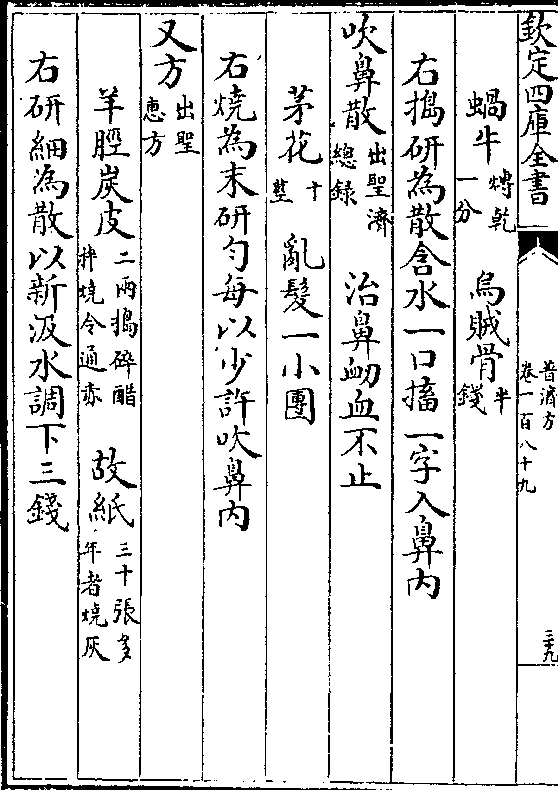 欽定四庫全書
普濟方
卷一百八十九
三十九
蝸牛焙乾一分 烏賊骨半錢
右搗研為散含水一口搐一字入鼻内
吹鼻散出聖濟總録 治鼻衂血不止
茅花十莖 亂髮一小團
右燒為末研勻每以少許吹鼻内
又方出聖惠方
羊脛炭皮二兩搗碎醋拌燒令通赤 故紙三十張多年者燒灰
右研細為散以新汲水調下三錢